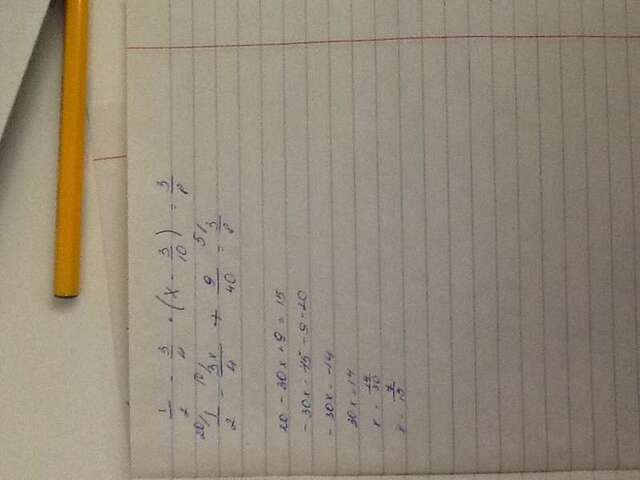 1/2 - 3/4 · (x - 3/10) = 3/8
20/ 1/2 - 10/ 3x/4 + 9/40 = 5/ 3/8
20 - 30x + 9 = 15
- 30x = 15 - 9 - 20
- 30x = -14
30x = 14
x = 14/30
x = 7/15